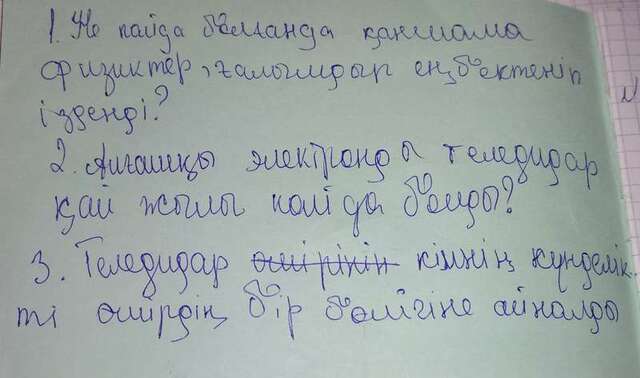 1. Не пайда болғанда қаншама
физиктер, ғалымдар еңбектеніп
ізденді?
2. Алғашқы электронды теледидар
қай жылы пайда болды?
3. Теледидар өмірінің кімнің күнделік
ті өмірдің бір бөлігіне айналды